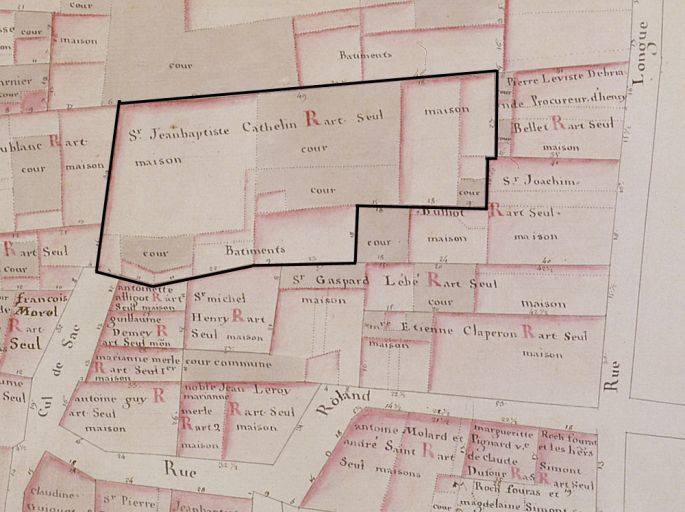 cour
cour
maison
cour
Batiments
Longue
Sr. Jeanbaptiste Cathelin R art. Seul
maison
cour
cour
maison
cour
cour
Batiments
Pierre Leviste
de Procureur d'henry
Bellet R art Seul
maison
Sr. Joachim
R art Seul
maison
cour
maison
R art
cour
maison
R art Seul
Cour
françois
Morel
R art
Seul
Cul de Sac
antoinette
alliout R art
Seul maison
guillaume
Demey R
art Seul mon
marianne merle
R art Seul 1er
maison
antoine guy R
art Seul
maison
Sr michel
Henry R art
Seul maison
cour commune
noble Jean Leroy
marianne
merle R art Seul
R art 2 maison
maison
Sr Gaspard Lébé R art Seul
maison
cour
maison
Etienne Claperon R art Seul
maison
maison
Rue
Roland
Rue
antoine Molard et
andré Saint R art
Seul maisons
margueritte
Pignard ve
de claude
Dufour R as
Roch fourat
et les hers
Simont
R art Seul
Roch fouras et
magdelaine Simont
cour
claudine
Guiguet
Sr Pierre
Jeanbaptiste